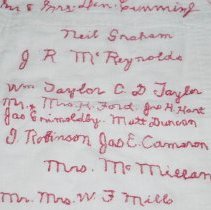 Mr & Mrs Dan Cumming
Neil Graham
J R McReynolds
Wm Taylor C D Taylor
Mr. & Mrs. H. Ford. Jas A. Hart
Jas Grimoldby. Matt Duncan
J. Robinson Jas E. Cameron
Mrs. McMillan
Mr. Mrs. W F Mills